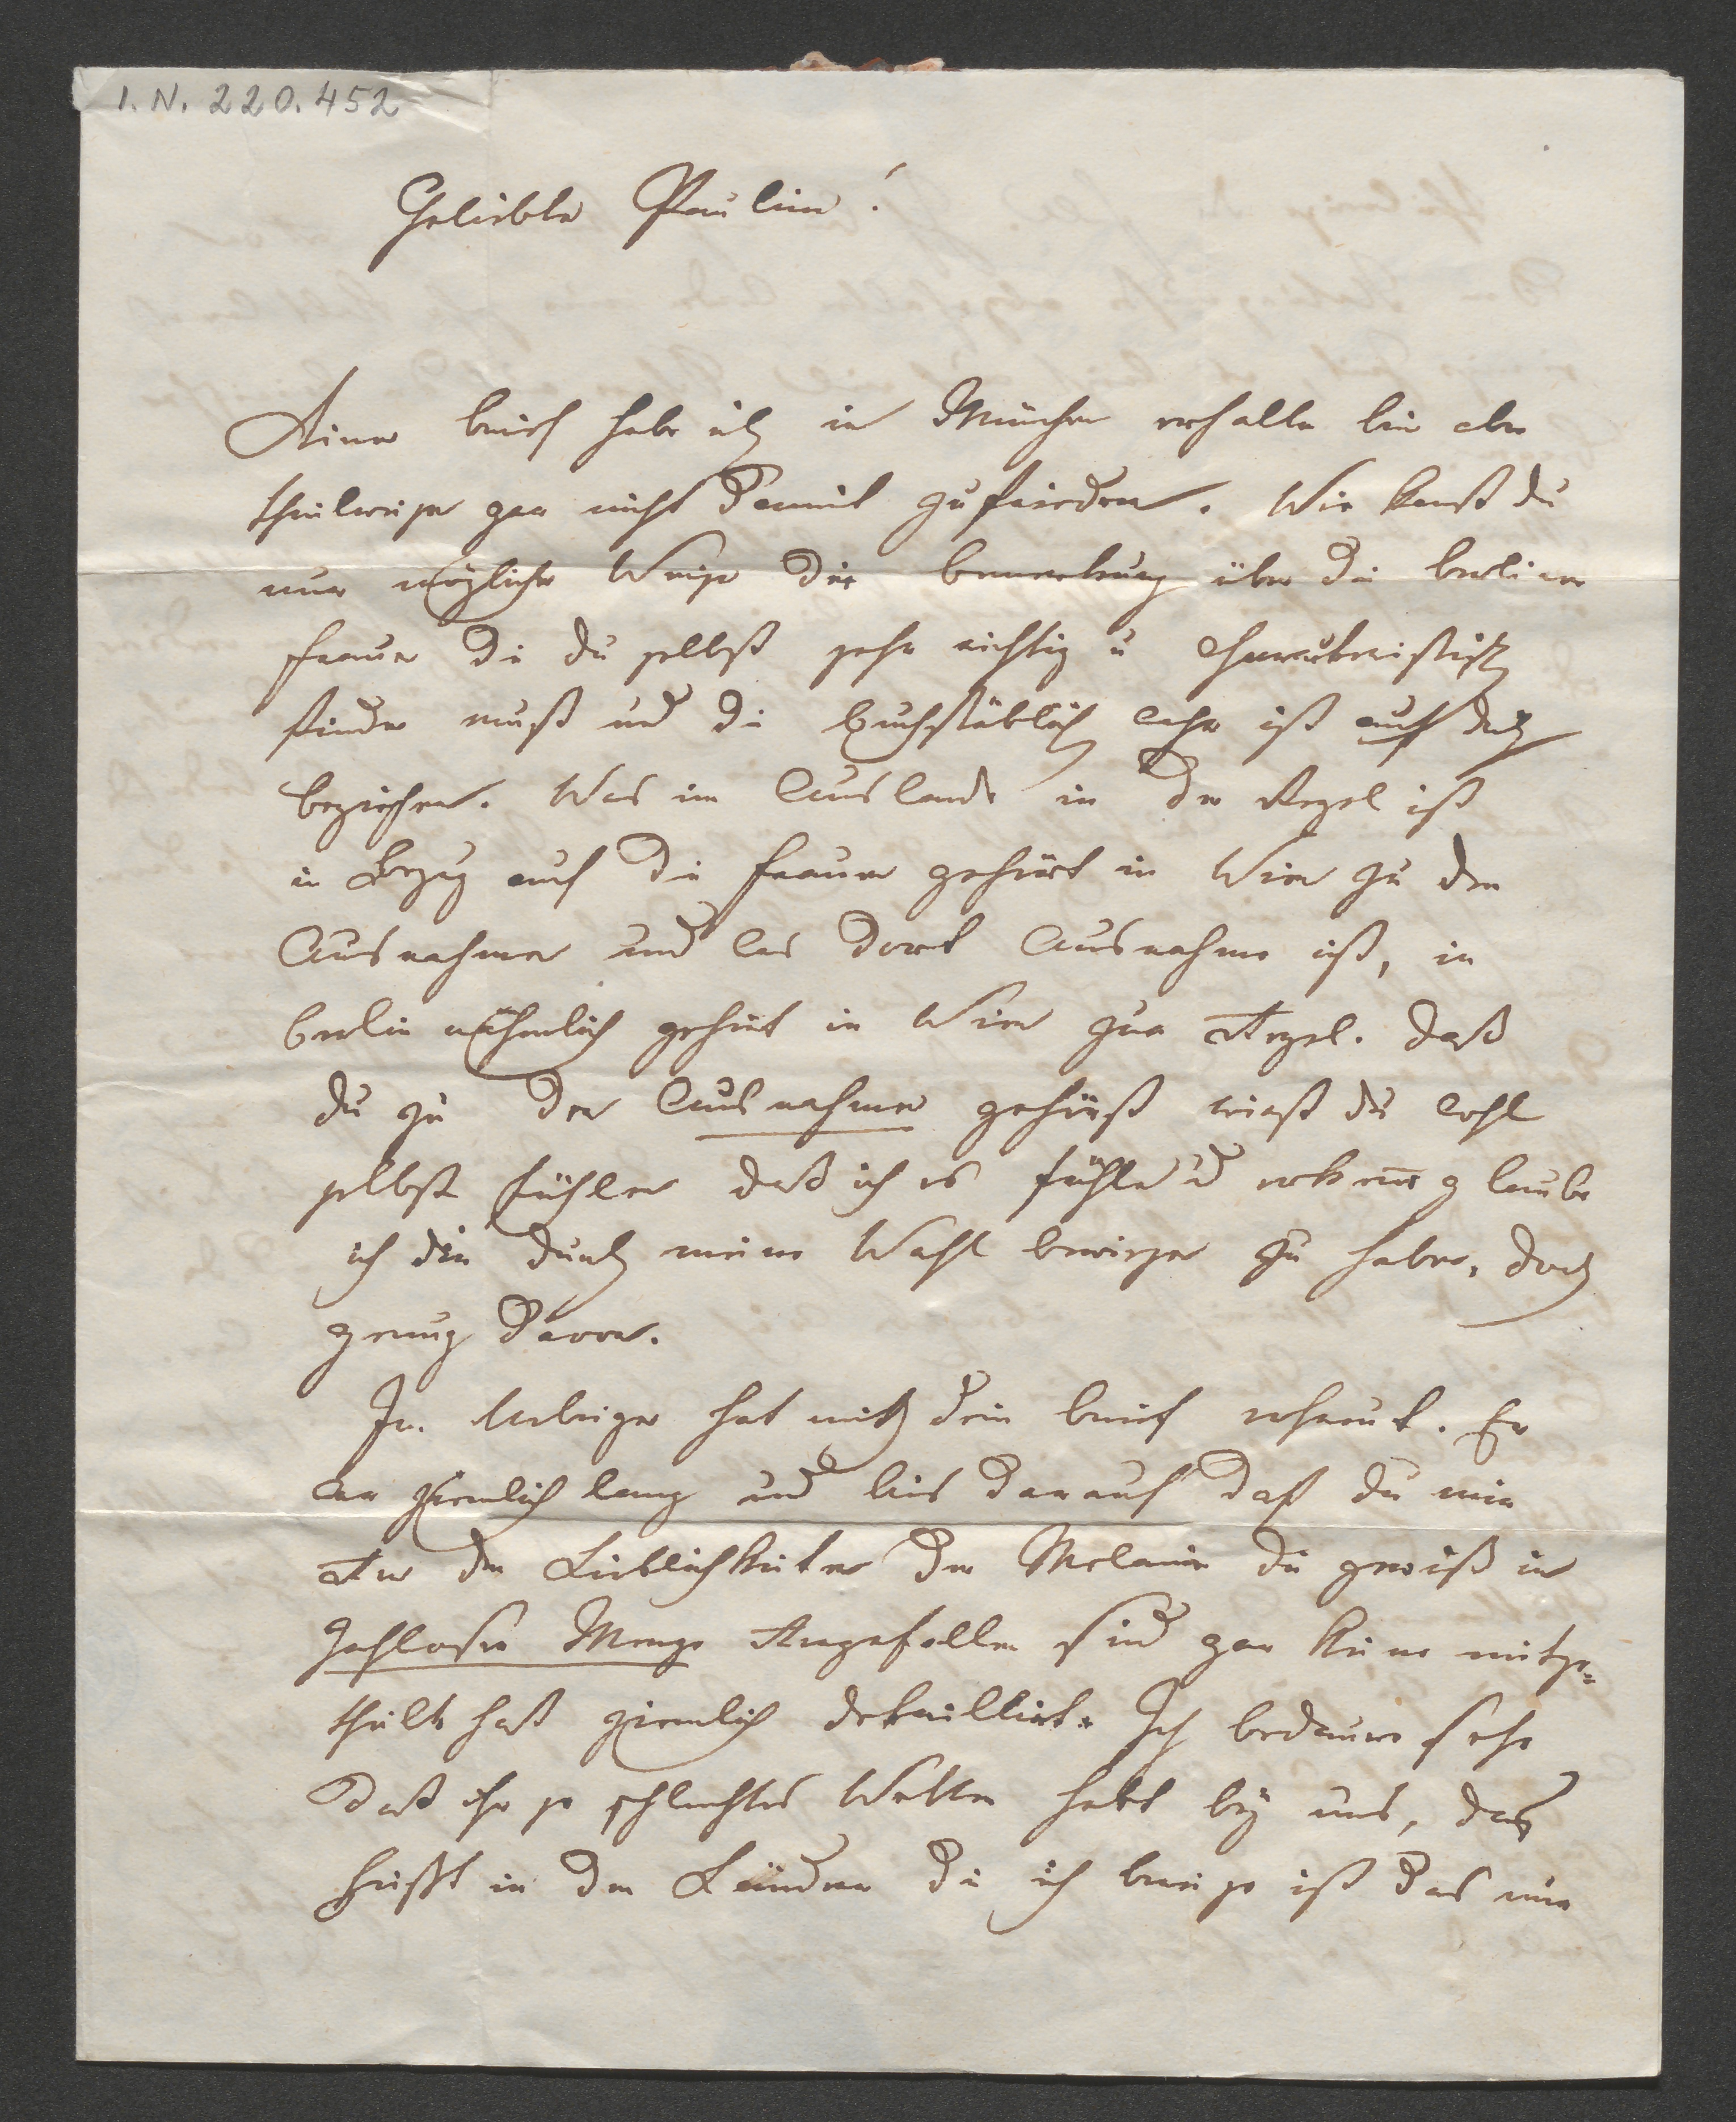 I. N. 220.452
Geliebte Pauline!
Deinen brief habe ich in München erhalten bin aber
theilweise gar nicht damit zufrieden. Wie kanst du
nur mögliche Weise die bemerkung über die berliner
frauen die du selbst sehr richtig u charakteristisch
finden must und die buchstäblich wahr ist auf dich
beziehen. Was im Auslande in der Regel ist
in Bezug auf die frauen gehört in Wien zu den
Ausnahmen und was dort Ausnahme ist, in
berlin nähmlich gehört in Wien zur Regel. Daß
du zu den Ausnahmen gehörst wirst du wohl
selbst fühlen daß ich es fühle und erkenne glaube
ich dir durch meine Wahl bewiesen zu haben, doch
genug davon.
Im Uebrigen hat mich dein brief erfreut. Er
war ziemlich lang und bis darauf daß du mir
von den Lieblichkeiten der Melanie die gewiß in
zahloser Menge vorgefallen sind gar keine mitge=
theilt hast ziemlich detaillirt. Ich bedaure sehr
daß ihr so schlechtes Wetter habt bey uns, das
heißt in den Ländern die ich bereise ist das nur